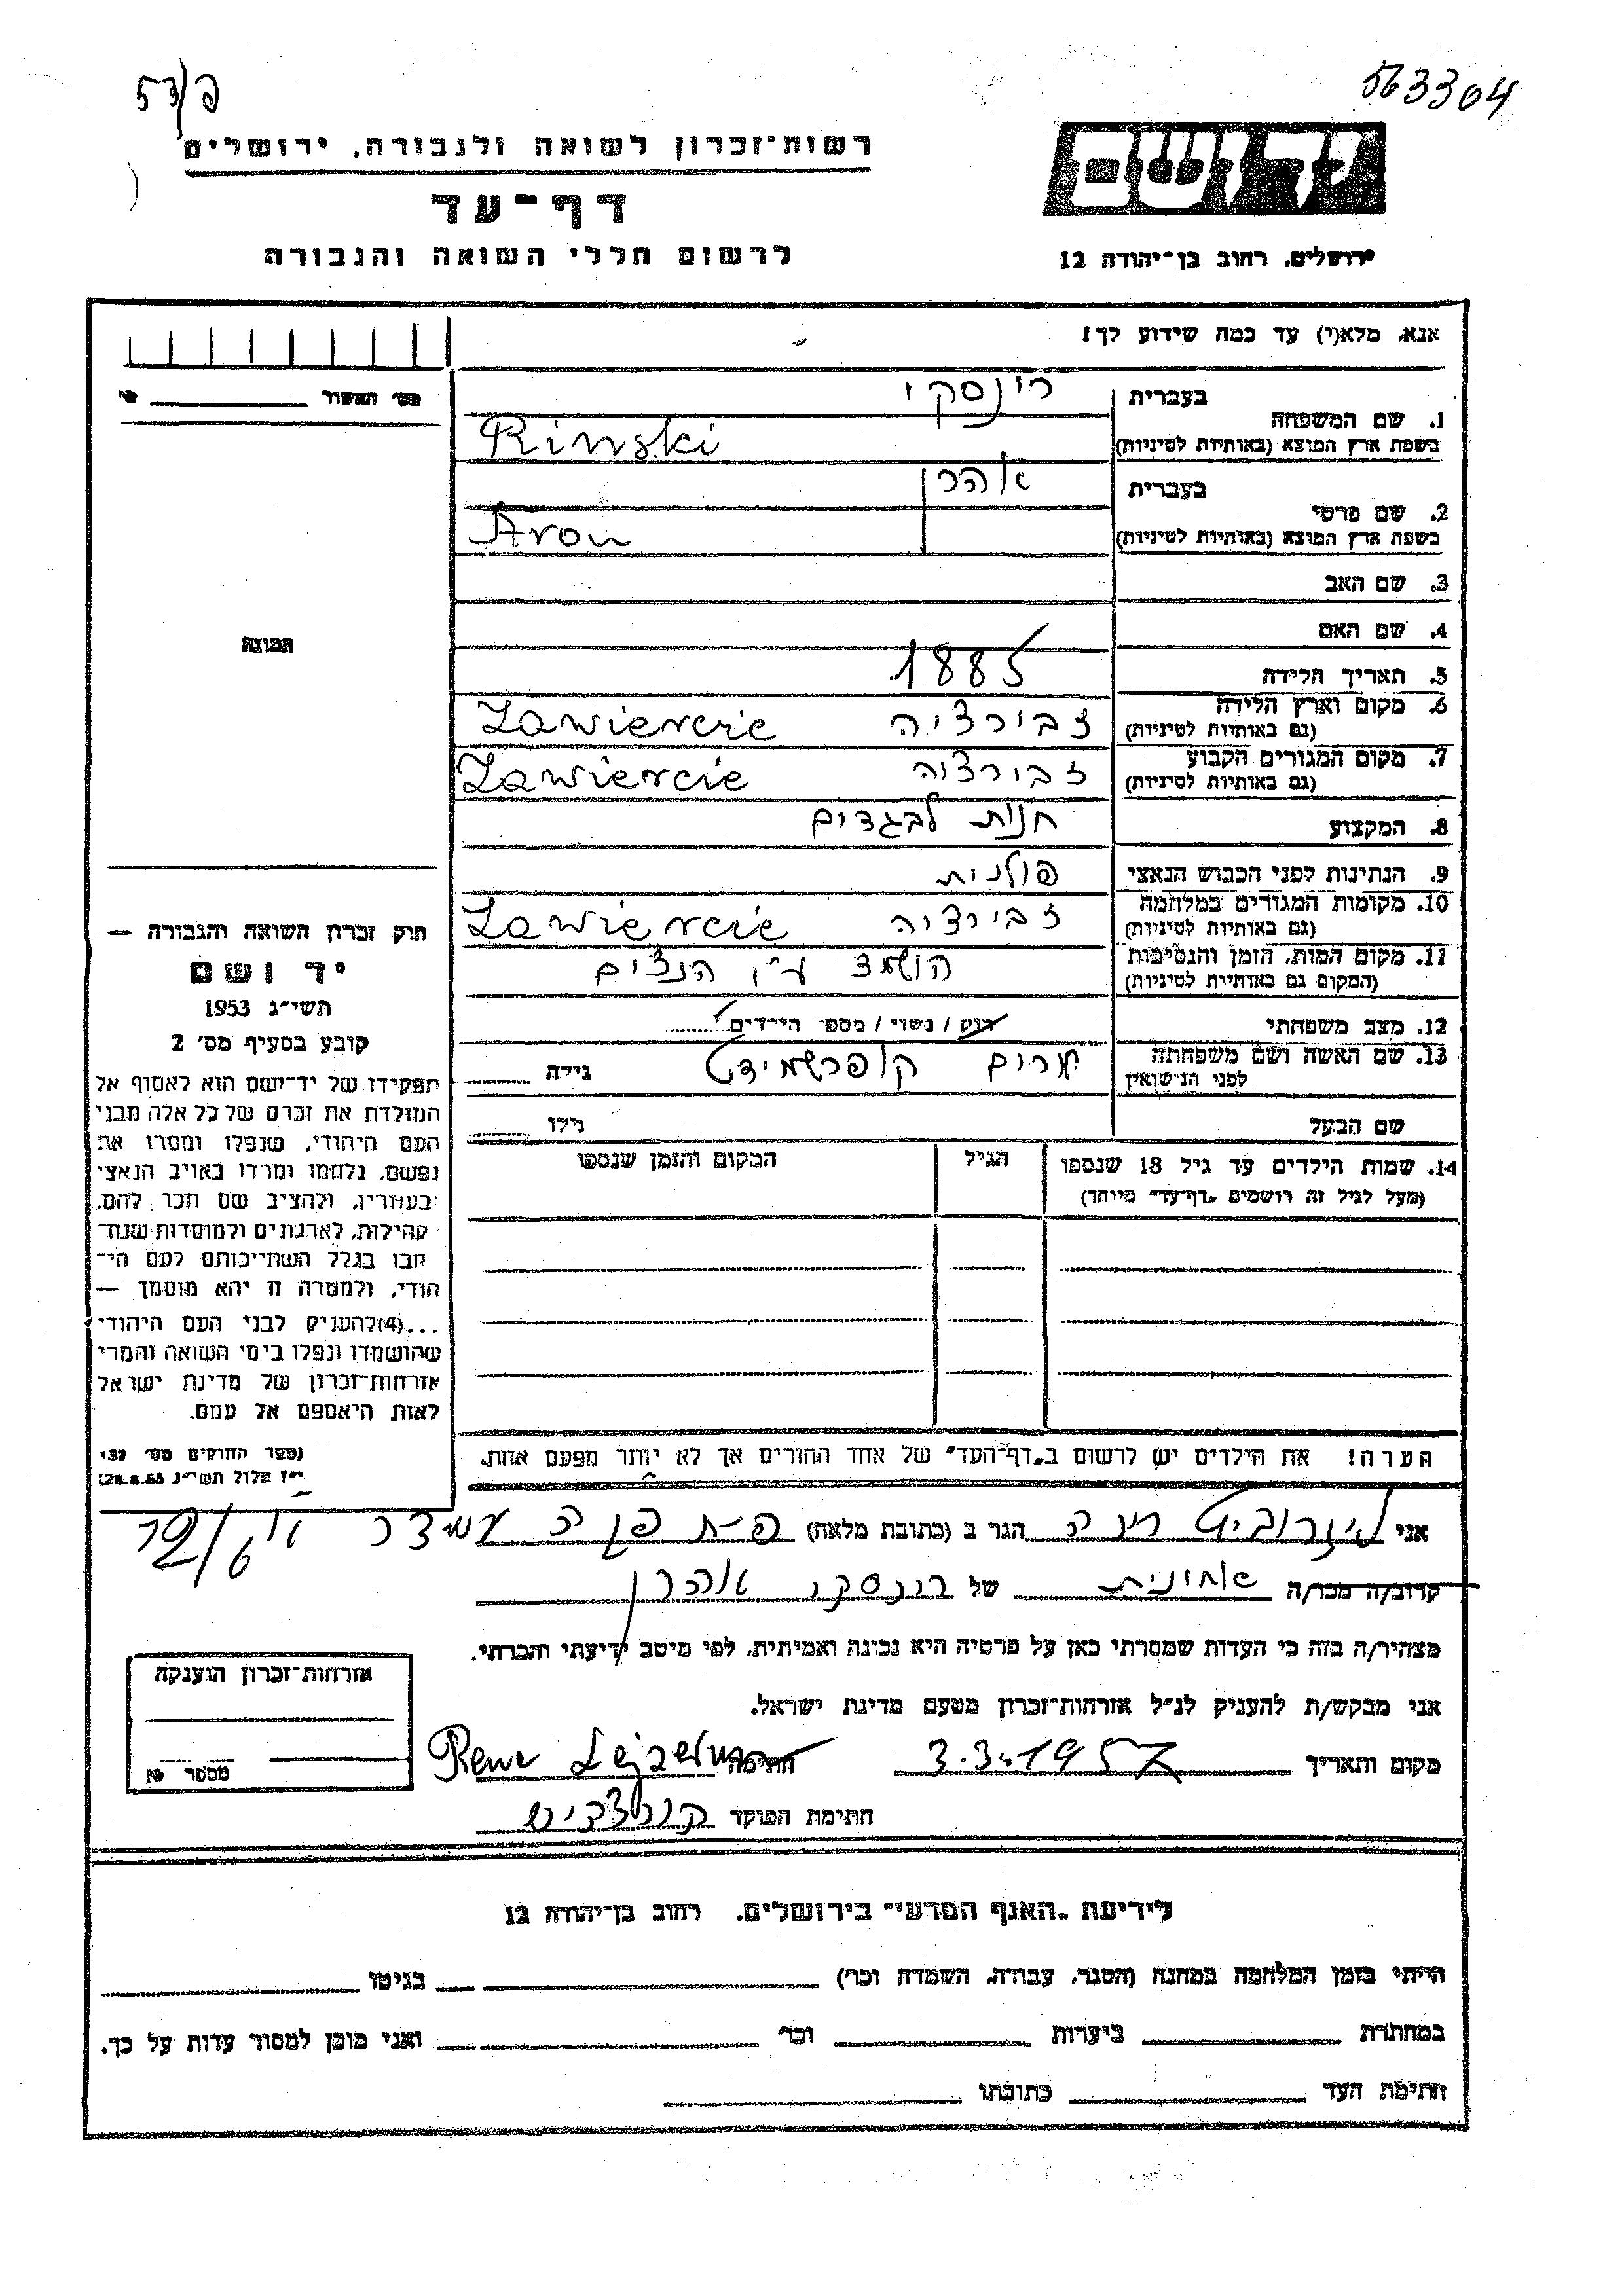 פ/53
563304
רשות־זכרון לשואה ולגבורה, ירושלים
דף־עד
לרשום חללי השואה והגבורה
יד ושם
ירושלים, רחוב בן־יהודה 12
אנא, מלא(י) עד כמה שידוע לך!
מס׳ האשור №
1. שם המשפחה
בעברית רינסקי
בשפת ארץ המוצא (באותיות לטיניות) Rinski
2. שם פרטי
בעברית אהרן
בשפת ארץ המוצא (באותיות לטיניות) Aron
3. שם האב
4. שם האם
5. תאריך הלידה 1885
6. מקום וארץ הלידה זבירציה Zawiercie
(גם באותיות לטיניות)
7. מקום המגורים הקבוע זבירציה Zawiercie
(גם באותיות לטיניות)
8. המקצוע חנות לבגדים
9. הנתינות לפני הכבוש הנאצי פולנית
10. מקומות המגורים במלחמה זבירציה Zawiercie
(גם באותיות לטיניות)
11. מקום המות, הזמן והנסיבות הושמד ע"י הנצים
(המקום גם באותיות לטיניות)
12. מצב משפחתי רווק / נשוי / מספר הילדים
13. שם האשה ושם משפחתה מרים קופרשמידט גילה
לפני הנישואין
שם הבעל גילו
14. שמות הילדים עד גיל 18 שנספו הגיל המקום והזמן שנספו
(מעל לגיל זה רושמים „דף־עד" מיוחד)
הערה! את הילדים יש לרשום ב„דף־העד" של אחד ההורים אך לא יותר מפעם אחת.
תמונה
חוק זכרון השואה והגבורה —
יד ושם
תשי"ג 1953
קובע בסעיף מס׳ 2
תפקידו של יד־ושם הוא לאסוף אל
המולדת את זכרם של כל אלה מבני
העם היהודי, שנפלו ומסרו את
נפשם, נלחמו ומרדו באויב הנאצי
בעוזריו, ולהציב שם וזכר להם,
קהילות, לארגונים ולמוסדות שנח־
רבו בגלל השתייכותם לעם הי־
הודי, ולמטרה זו יהא מוסמך —
...(4)להעניק לבני העם היהודי
שהושמדו ונפלו בימי השואה והמרי
אזרחות־זכרון של מדינת ישראל
לאות היאספם אל עמם.
(ספר החוקים מס׳ 132
י"ז אלול תשי"ג 28.8.53)
אני לייזרוביט רינה הגר ב (כתובת מלאה) פ"ת פג'ה עמידר
קרוב/ה מכר/ה אחינית של רינסקי אהרן
מצהיר/ה בזה כי העדות שמסרתי כאן על פרטיה היא נכונה ואמיתית, לפי מיטב ידיעתי והכרתי.
אני מבקש/ת להעניק לנ"ל אזרחות־זכרון מטעם מדינת ישראל.
מקום ותאריך 3.3.1957 חתימה
חתימת הפוקד
אזרחות־זכרון הוענקה
מספר №
לידיעת „האגף המדעי" בירושלים, רחוב בן־יהודה 12
הייתי בזמן המלחמה במחנה (הסגר, עבודה, השמדה וכו׳) בגיטו
במחתרת ביערות וכו׳ ואני מוכן למסור עדות על כך.
חתימת העד כתובתו